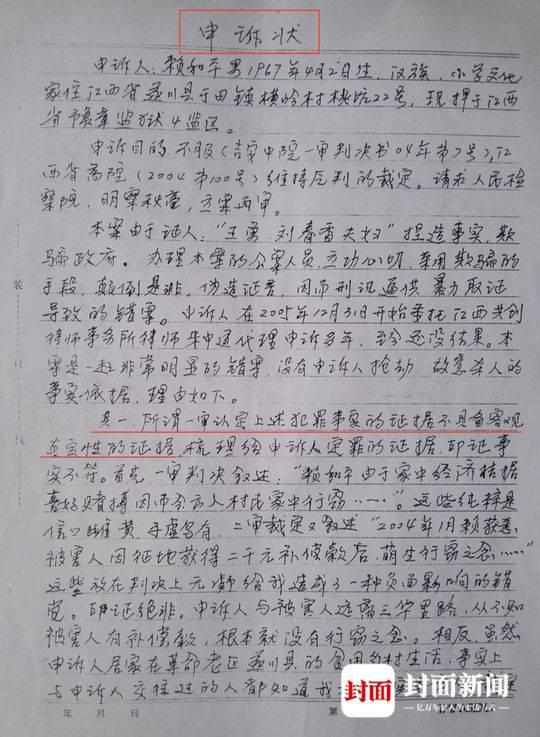 申诉状
申诉人：赖和平 男 1967年4月2日生，汉族，小学文化
家住江西省遂川县于田镇横岭村桃坑22号，现押于江西
省豫章监狱4监区。
申诉目的：不服（吉安中院一审判决书04年第7号），江
西省高院（2004第100号）维持原判的裁定。请求人民检
察院，明察秋毫，立案再审。
本案由于证人："王勇、刘春香夫妇"捏造事实，欺
骗政府。办理本案的公案人员，立功心切，采用欺骗的
手段，颠倒是非，伪造证言，因而刑讯逼供 暴力取证
导致的错案。申诉人在2005年12月31日开始委托江西共创
律师事务所律师朱中道代理申诉多年，至今还没结果。本
案是一起非常明显的错案，没有申诉人抢劫、故意杀人的
事实依据，理由如下。
其一，所谓一审认定上述犯罪事实的证据不具备客观
真实性的证据，梳理给申诉人定罪的证据，印证事
实不符。首先，一审判决叙述："赖和平由于家中经济拮据
喜好赌博因而去本村民家中行窃……"。这些纯粹是
信口雌黄，子虚乌有，二审裁定又叙述"2004年1月赖获悉
被害人因征地获得二千元补偿款后，萌生行窃之念……"
这些放在判决上无疑给我造成了一种负面影响的错
觉。印证绝非。申诉人与被害人远隔三华里路，从不知
被害人有补偿款，根本就没有行窃之念。相反，虽然
申诉人居家在革命老区遂川县的贫困乡村生活，事实上
与申诉人交往过的人都知道我
装
订
线
年 月 日
第
封面
封面新闻
亿万年轻人的生活方式